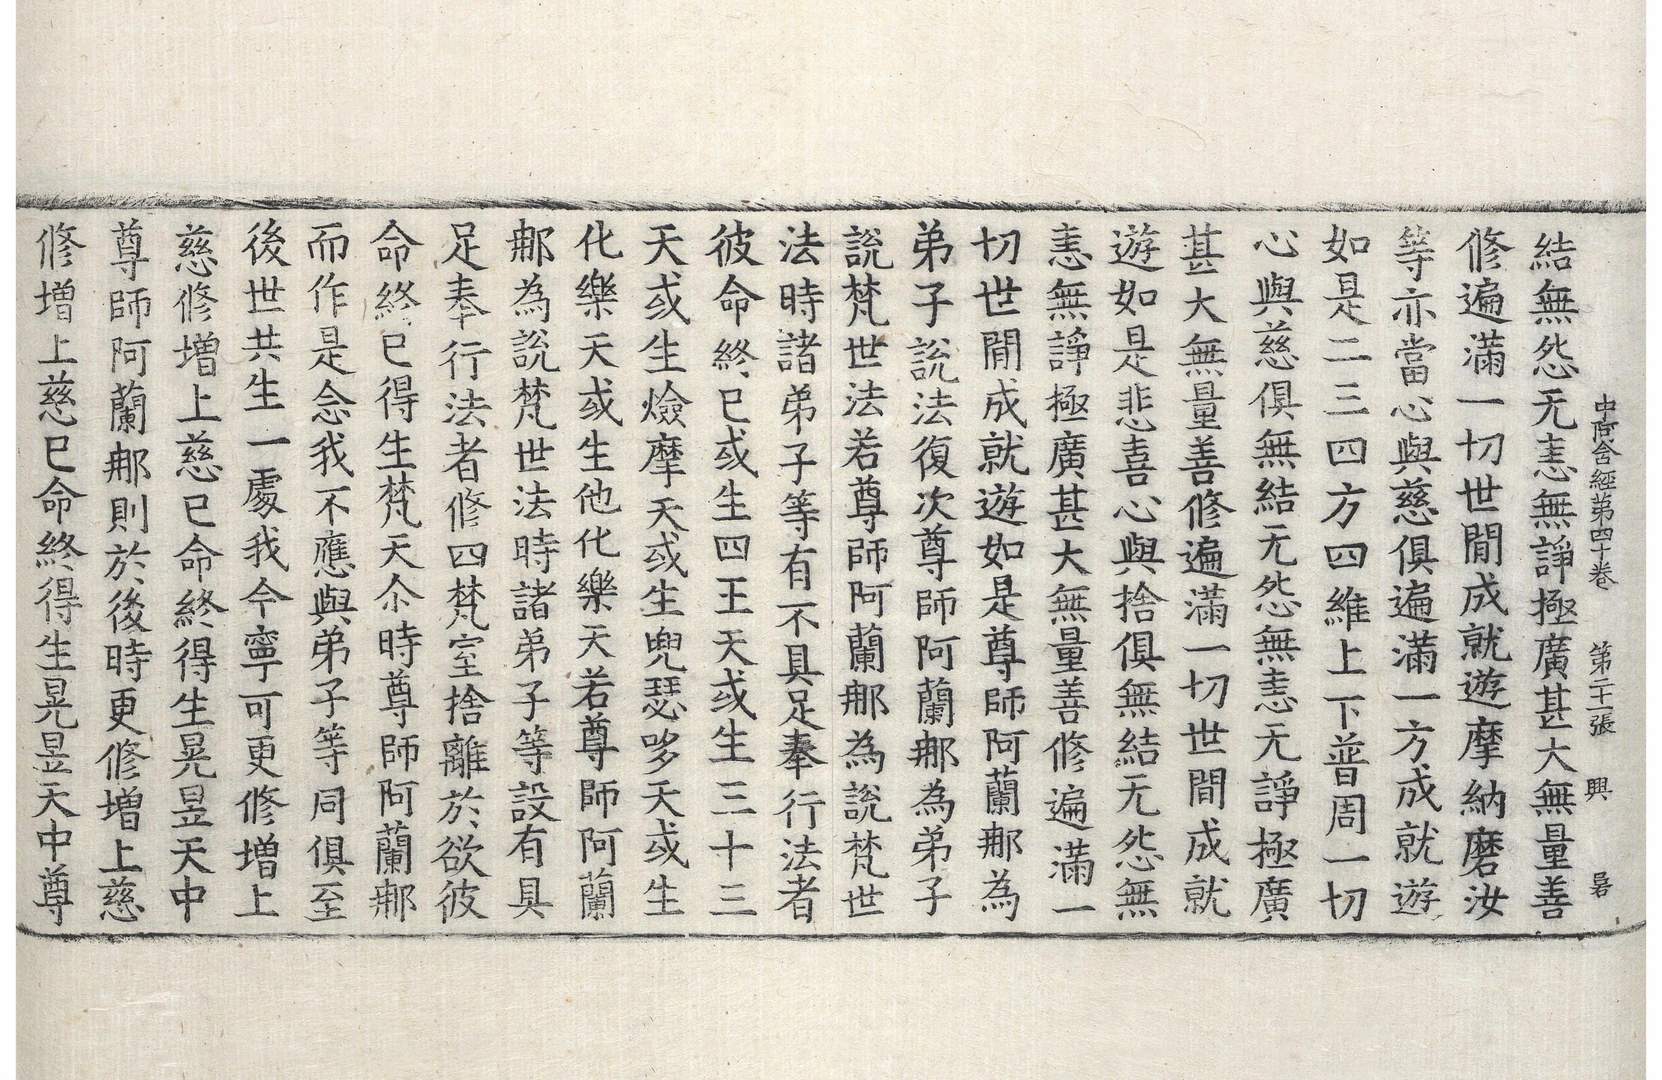 中阿含經第四十卷　第二十一張　興　晷
結無怨无恚無諍極廣甚大無量善
修遍滿一切世閒成就遊摩納磨汝
等亦當心與慈俱遍滿一方成就遊
如是二三四方四維上下普周一切
心與慈俱無結无怨無恚无諍極廣
甚大無量善修遍滿一切世間成就
遊如是悲喜心與捨俱無結无怨無
恚無諍極廣甚大無量善修遍滿一
切世閒成就遊如是尊師阿蘭那為
弟子說法復次尊師阿蘭那為弟子
說梵世法若尊師阿蘭那為說梵世
法時諸弟子等有不具足奉行法者
彼命終已或生四王天或生三十三
天或生燄摩天或生兜瑟哆天或生
化樂天或生他化樂天若尊師阿蘭
那為說梵世法時諸弟子等設有具
足奉行法者修四梵室捨離於欲彼
命終已得生梵天尒時尊師阿蘭那
而作是念我不應與弟子等同俱至
後世共生一處我今寧可更修增上
慈修增上慈已命終得生晃昱天中
尊師阿蘭那則於後時更修增上慈
修增上慈已命終得生晃昱天中尊